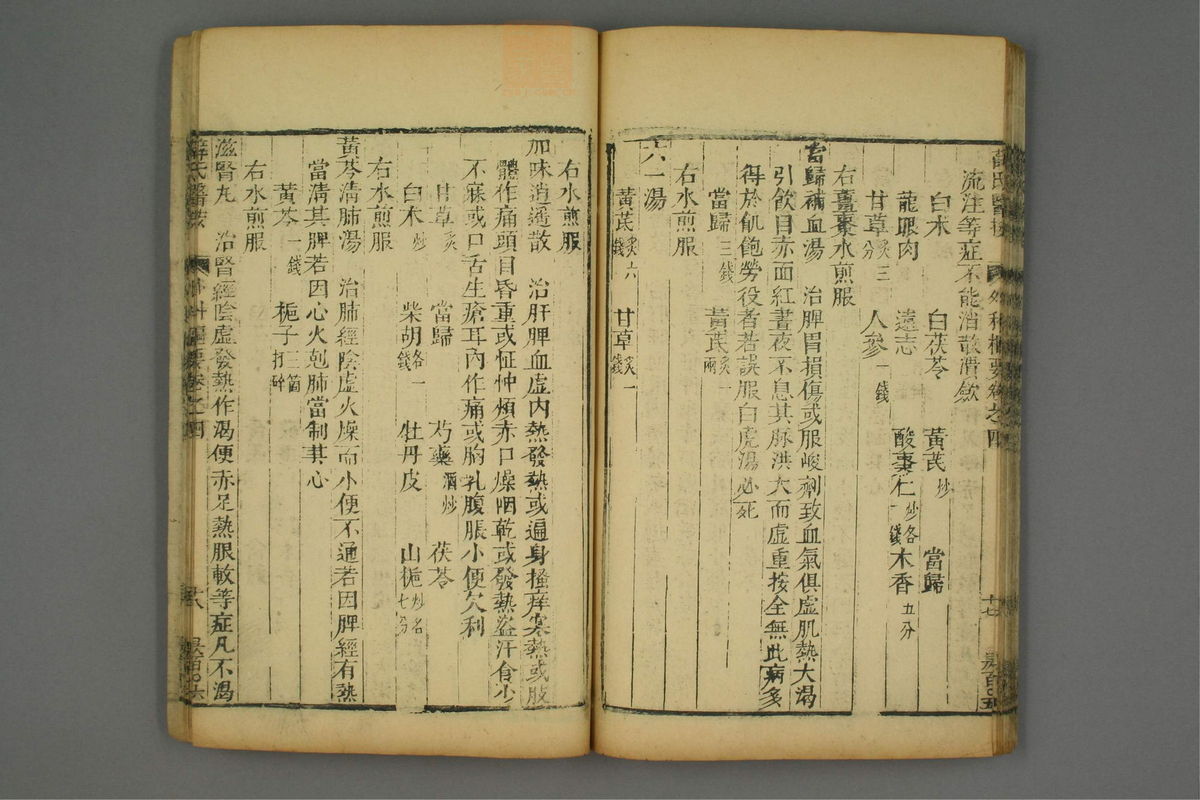 薛氏醫按 外科樞要卷之四 十七
流注等症不能消散潰斂
白朮 白茯苓 黃芪炒 當歸
龍眼肉 遠志 酸棗仁炒各一錢 木香五分
甘草炙三分 人參一錢
右薑棗水煎服
當歸補血湯 治脾胃損傷或服峻劑致血氣俱虛肌熱大渴
引飲目赤面紅晝夜不息其脉洪大而虛重按全無此病多
得於飢飽勞役者若誤服白虎湯必死
當歸三錢 黃芪炙一兩
右水煎服
六一湯
黃芪炙六錢 甘草炙一錢
右水煎服
加味逍遙散 治肝脾血虛内熱發熱或遍身搔痒寒熱或肢
體作痛頭目昏重或怔忡煩赤口燥咽乾或發熱盜汗食少
不寐或口舌生瘡耳內作痛或胸乳腹脹小便欠利
甘草炙 當歸 芍藥酒炒 茯苓
白朮炒 柴胡各一錢 牡丹皮 山梔炒各七分
右水煎服
黃芩淸肺湯 治肺經陰虛火燥而小便不通若因脾經有熱
當淸其脾若因心火剋肺當制其心
黃芩一錢 梔子三箇打碎
右水煎服
滋腎丸 治腎經陰虛發熱作渴便赤足熱服軟等症凡不渴
薛氏醫按 外科樞要卷之四 十八